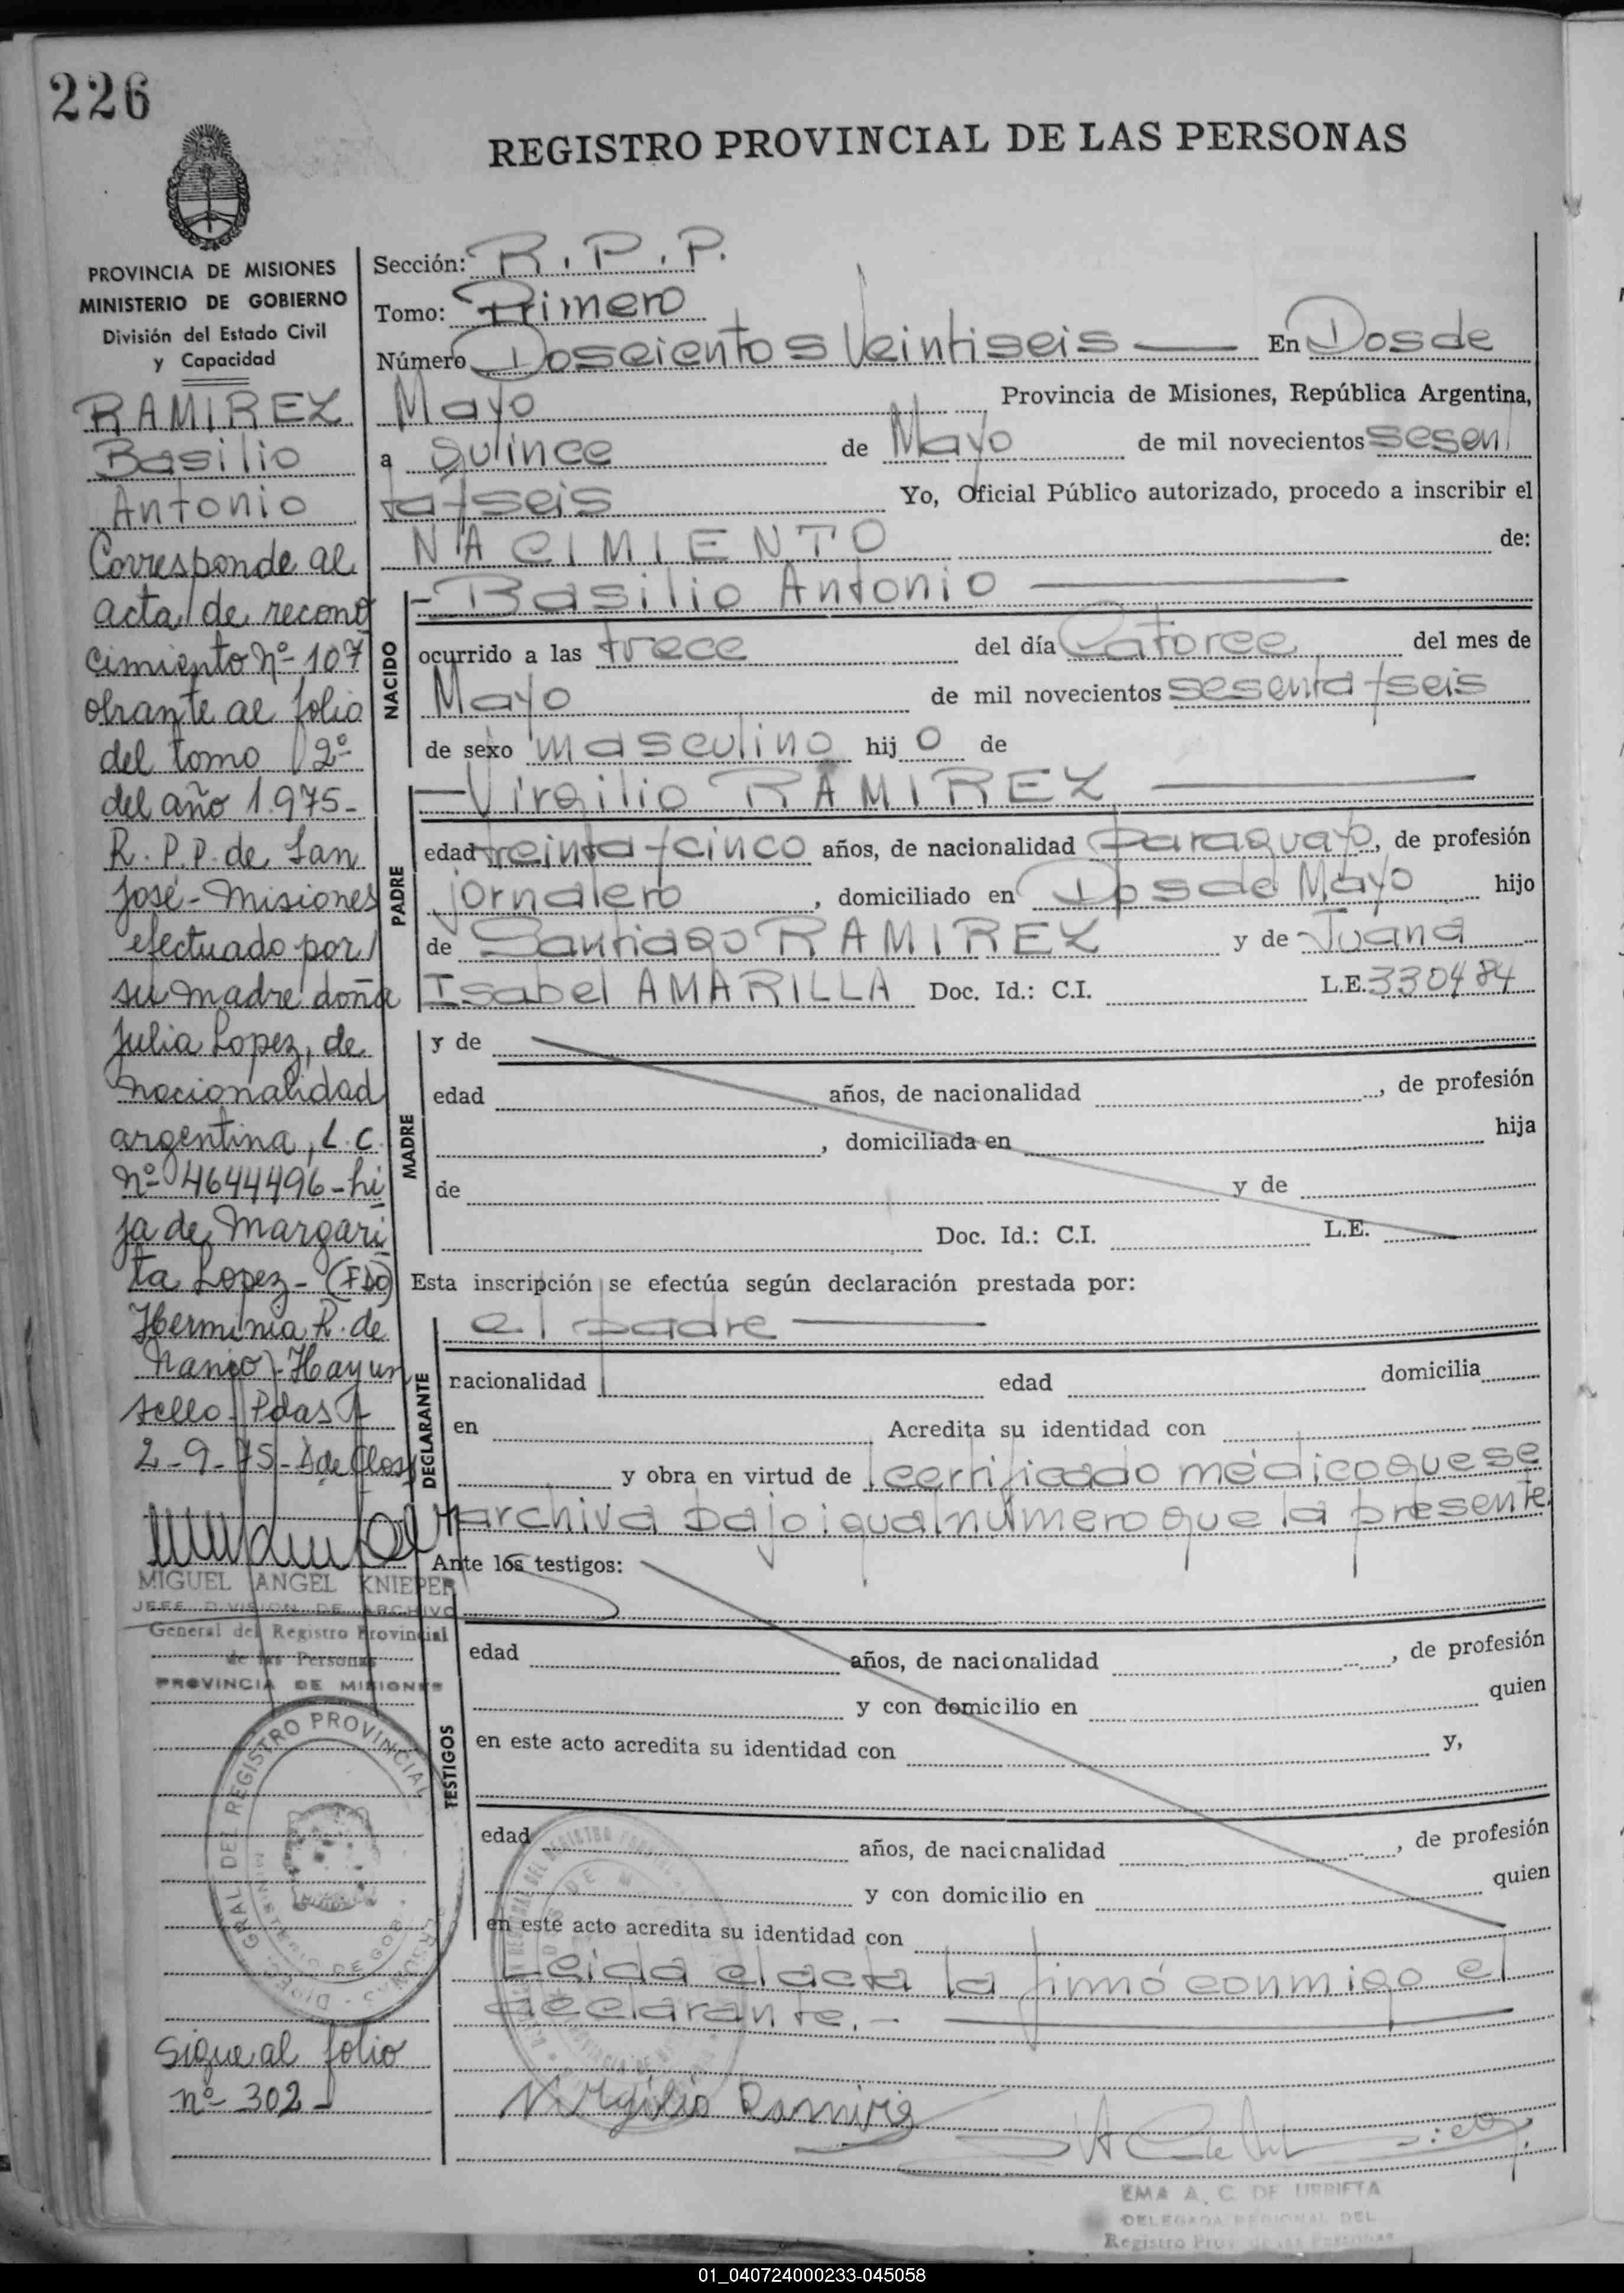 226
REGISTRO PROVINCIAL DE LAS PERSONAS
PROVINCIA DE MISIONES
MINISTERIO DE GOBIERNO
División del Estado Civil
y Capacidad
RAMIREZ
Basilio
Antonio
Corresponde al
acta de recono
cimiento Nº 107
obrante al folio
del tomo 2º
del año 1.975-
R. P. P. de San
José - Misiones
efectuado por
su madre doña
Julia Lopez, de
nacionalidad
argentina, L. C.
nº 4644496 - hi
ja de Margari
ta Lopez - (FDO)
Herminia R. de
Hay un
sello - Pdas
2-9-75-
MIGUEL ANGEL KNIEPER
JEFE DIVISION DE ARCHIVO
General del Registro Provincial
de las Personas
PROVINCIA DE MISIONES
sigue al folio
nº 302-
Sección: R. P. P.
Tomo: Primero
Número Doscientos Veintiseis — En Dos de
Mayo Provincia de Misiones, República Argentina,
a quince de Mayo de mil novecientos sesen
ta y seis Yo, Oficial Público autorizado, procedo a inscribir el
NACIMIENTO de:
NACIDO
- Basilio Antonio —
ocurrido a las trece del día Catorce del mes de
Mayo de mil novecientos sesenta y seis
de sexo masculino hij o de
PADRE
— Virgilio RAMIREZ —
edad treinta y cinco años, de nacionalidad paraguayo, de profesión
jornalero, domiciliado en Dos de Mayo hijo
de Santiago RAMIREZ y de Juana
Isabel AMARILLA Doc. Id.: C.I. L.E. 330484
MADRE
y de
edad años, de nacionalidad , de profesión
, domiciliada en hija
de y de
Doc. Id.: C.I. L.E.
Esta inscripción se efectúa según declaración prestada por:
DECLARANTE
el padre —
nacionalidad edad domicilia
en Acredita su identidad con
y obra en virtud de certificado médico que se
archiva bajo igual número que la presente
Ante los testigos:
TESTIGOS
edad años, de nacionalidad , de profesión
y con domicilio en quien
en este acto acredita su identidad con y,
edad años, de nacionalidad , de profesión
y con domicilio en quien
en este acto acredita su identidad con
Leida el acta la firmó conmigo el
declarante. -
Virgilio Ramirez
EMA A. C. DE URRIETA
DELEGADA REGIONAL DEL
Registro Prov. de las Personas
01_040724000233-045058